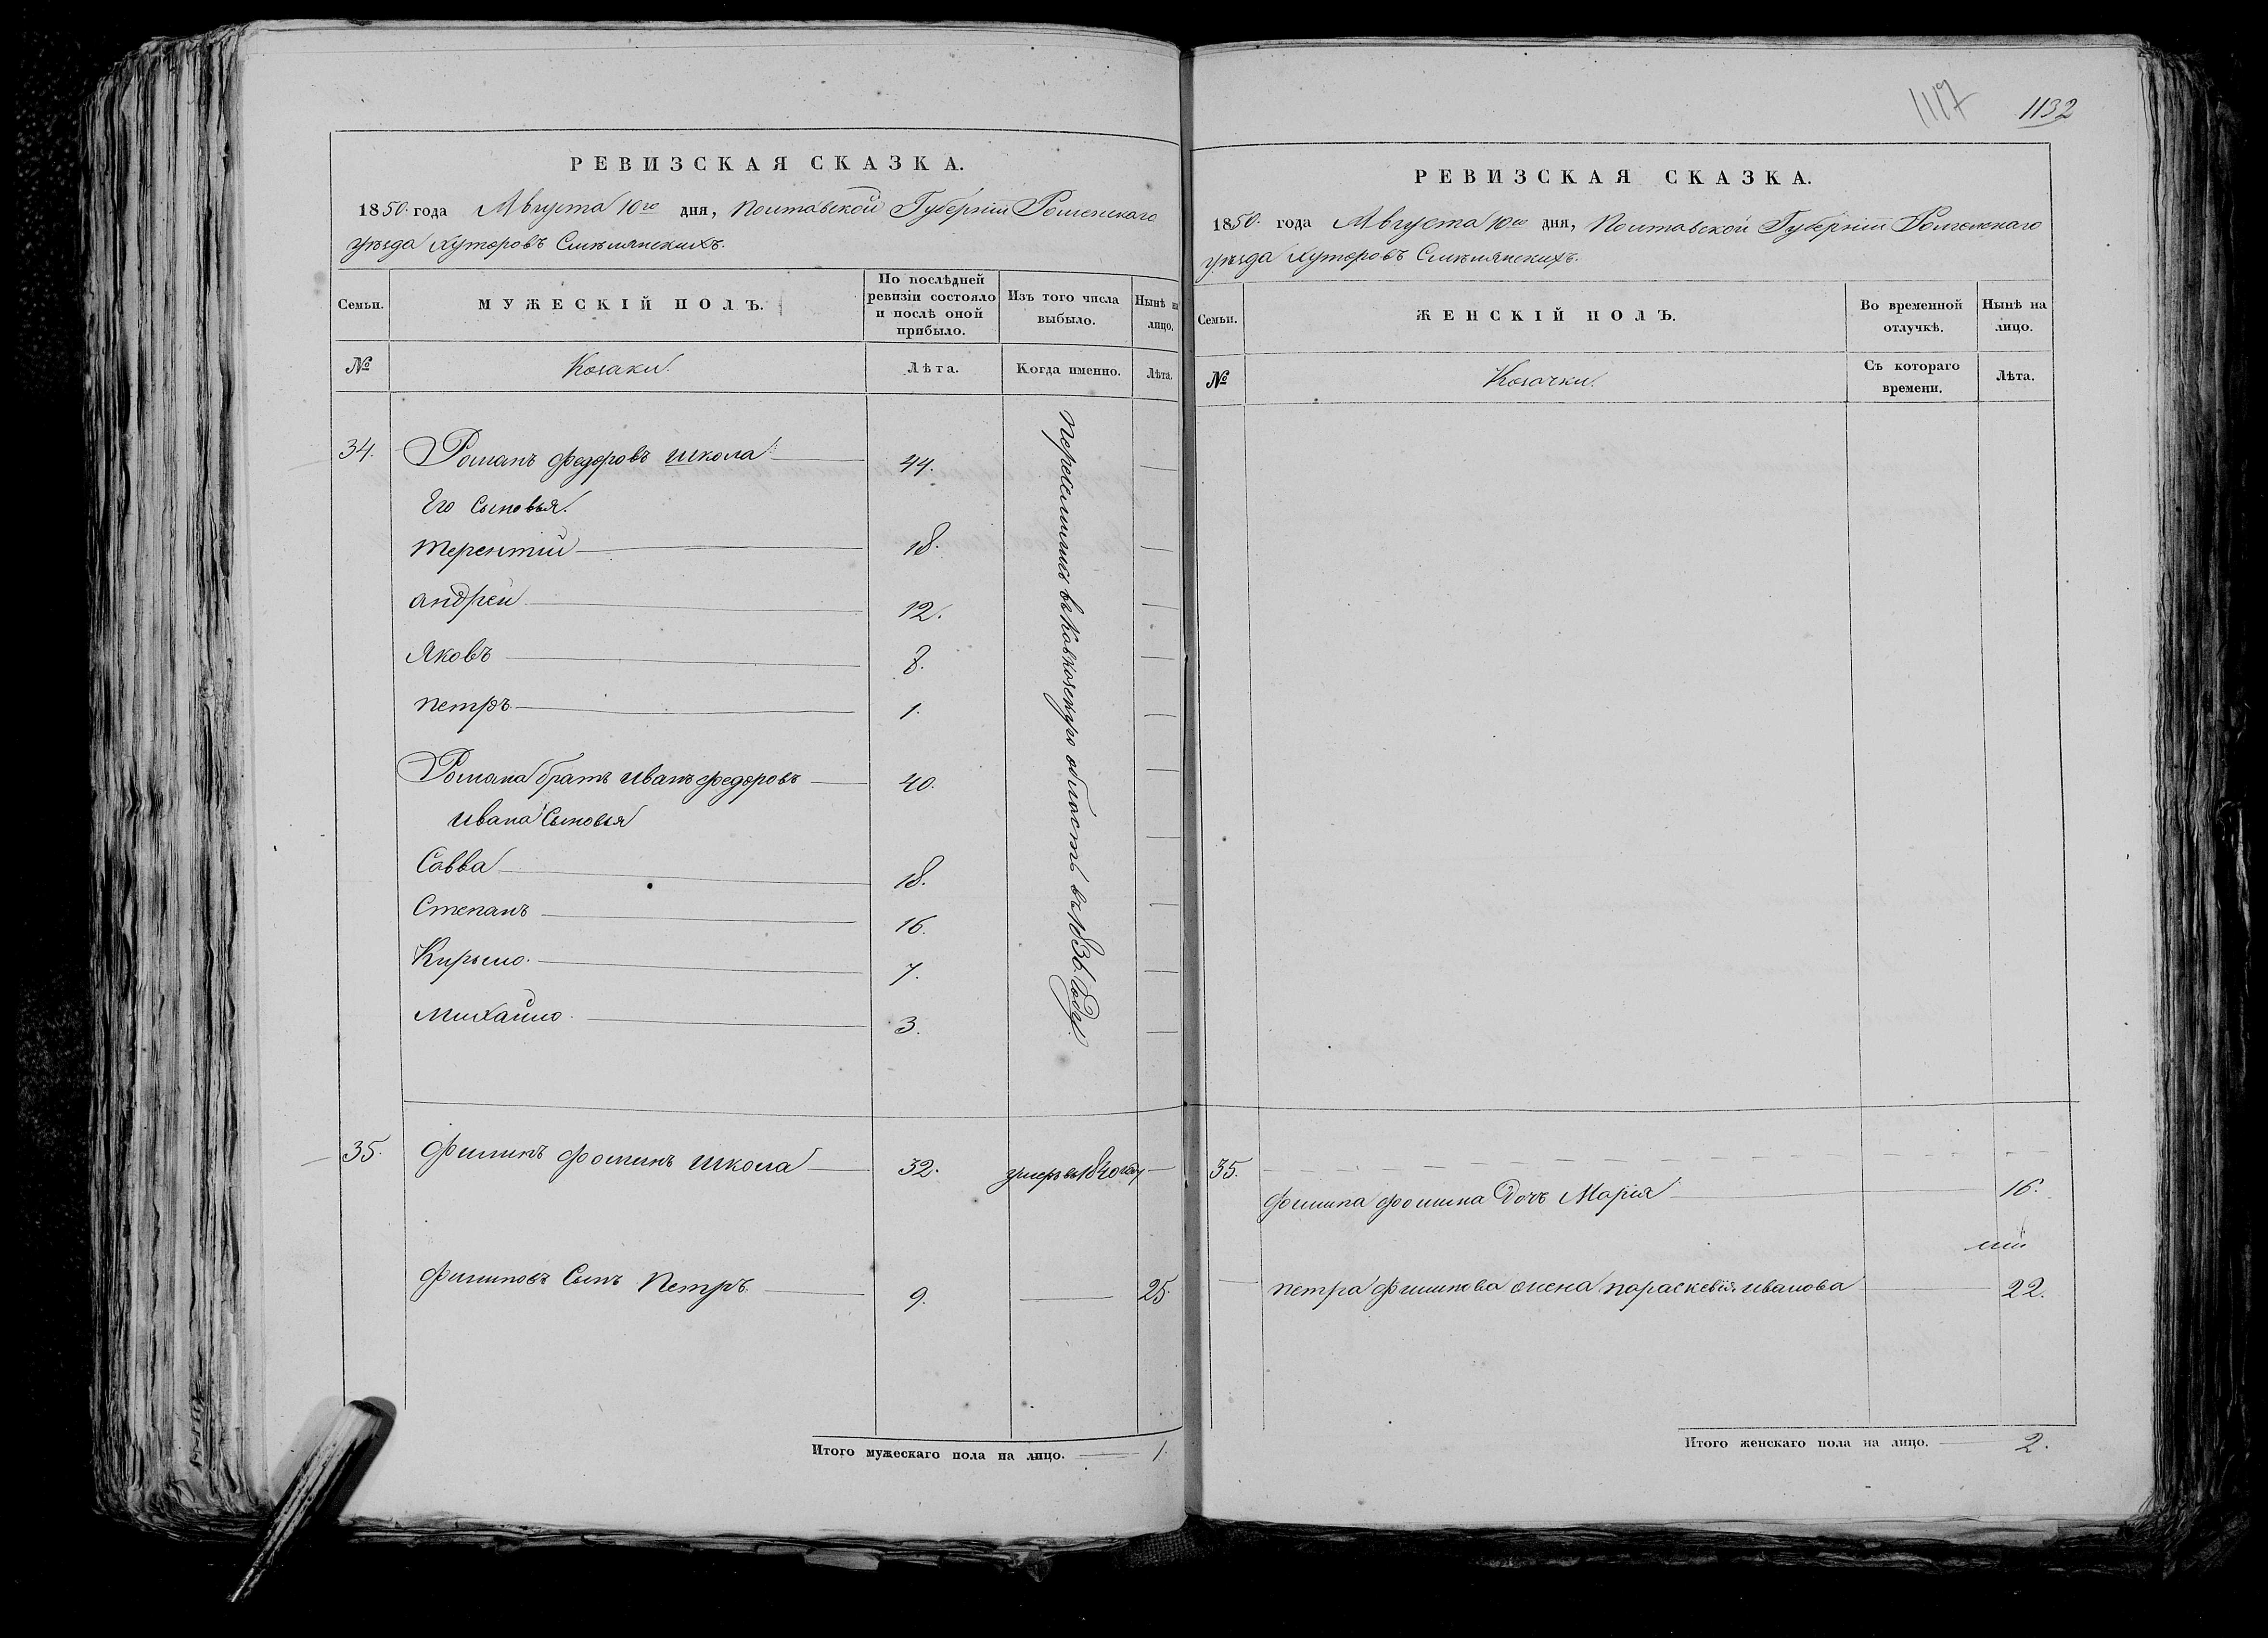 РЕВИЗСКАЯ СКАЗКА.
1850. года Августа 10го дня, Полтавской Губерніи Роменскаго
уѣзда Хуторовъ Смѣлянскихъ.
Семьи.
МУЖЕСКІЙ ПОЛЪ.
По послѣдней ревизіи состояло и послѣ оной прибыло.
Изъ того числа выбыло.
Нынѣ на лицо.
№
Козаки.
Лѣта.
Когда именно.
Лѣта.
34. Романъ Федоровъ Школа 44.
Его Сыновья.
Терентій 18.
Андрей 12.
Яковъ 8.
Петръ 1.
Романа братъ Иванъ Федоровъ 40.
Ивана Сыновья
Савва 18.
Степанъ 16.
Кирыло. 7.
Михайло. 3.
Переселились въ Кавказскую область въ 1836. Году.
35. Филипъ Фоминъ Школа 32. умеръ въ 1840 году
Филиповъ Сынъ Петръ. 9. 25.
Итого мужескаго пола на лицо. 1.
1117
1132
РЕВИЗСКАЯ СКАЗКА.
1850. года Августа 10го дня, Полтавской Губерніи Роменскаго
уѣзда Хуторовъ Смѣлянскихъ.
Семьи.
ЖЕНСКІЙ ПОЛЪ.
Во временной отлучкѣ.
Нынѣ на лицо.
№
Козачки.
Съ котораго времени.
Лѣта.
35.
Филипа Фомина Дочь Марія 16.
Петра Филипова жена Параскевія Иванова 22.
Итого женскаго пола на лицо. 2.